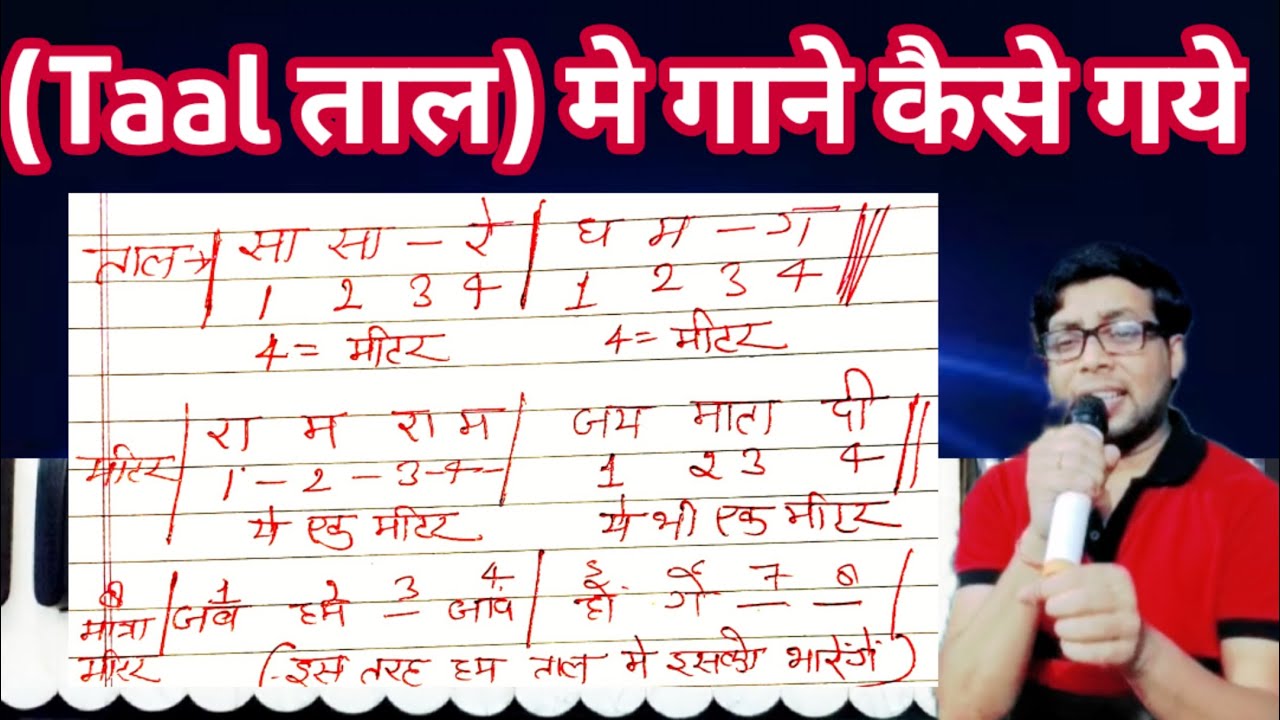 (Taal ताल) मे गाने कैसे गये
ताल→ | सा सा – रे | ध म – ग |||
1 2 3 4 | 1 2 3 4
4 = मीटर 4 = मीटर
मीटर | रा म रा म | जय माता दी ||
1 – 2 – 3 – 4 – 1 2 3 4
ये एक मीटर ये भी एक मीटर
8 1 2 3 4 5 6 7 8
मात्रा | जब हम — जवां | हों गें — — |
मीटर (इस तरह हम ताल मे इसको भारेंगें)